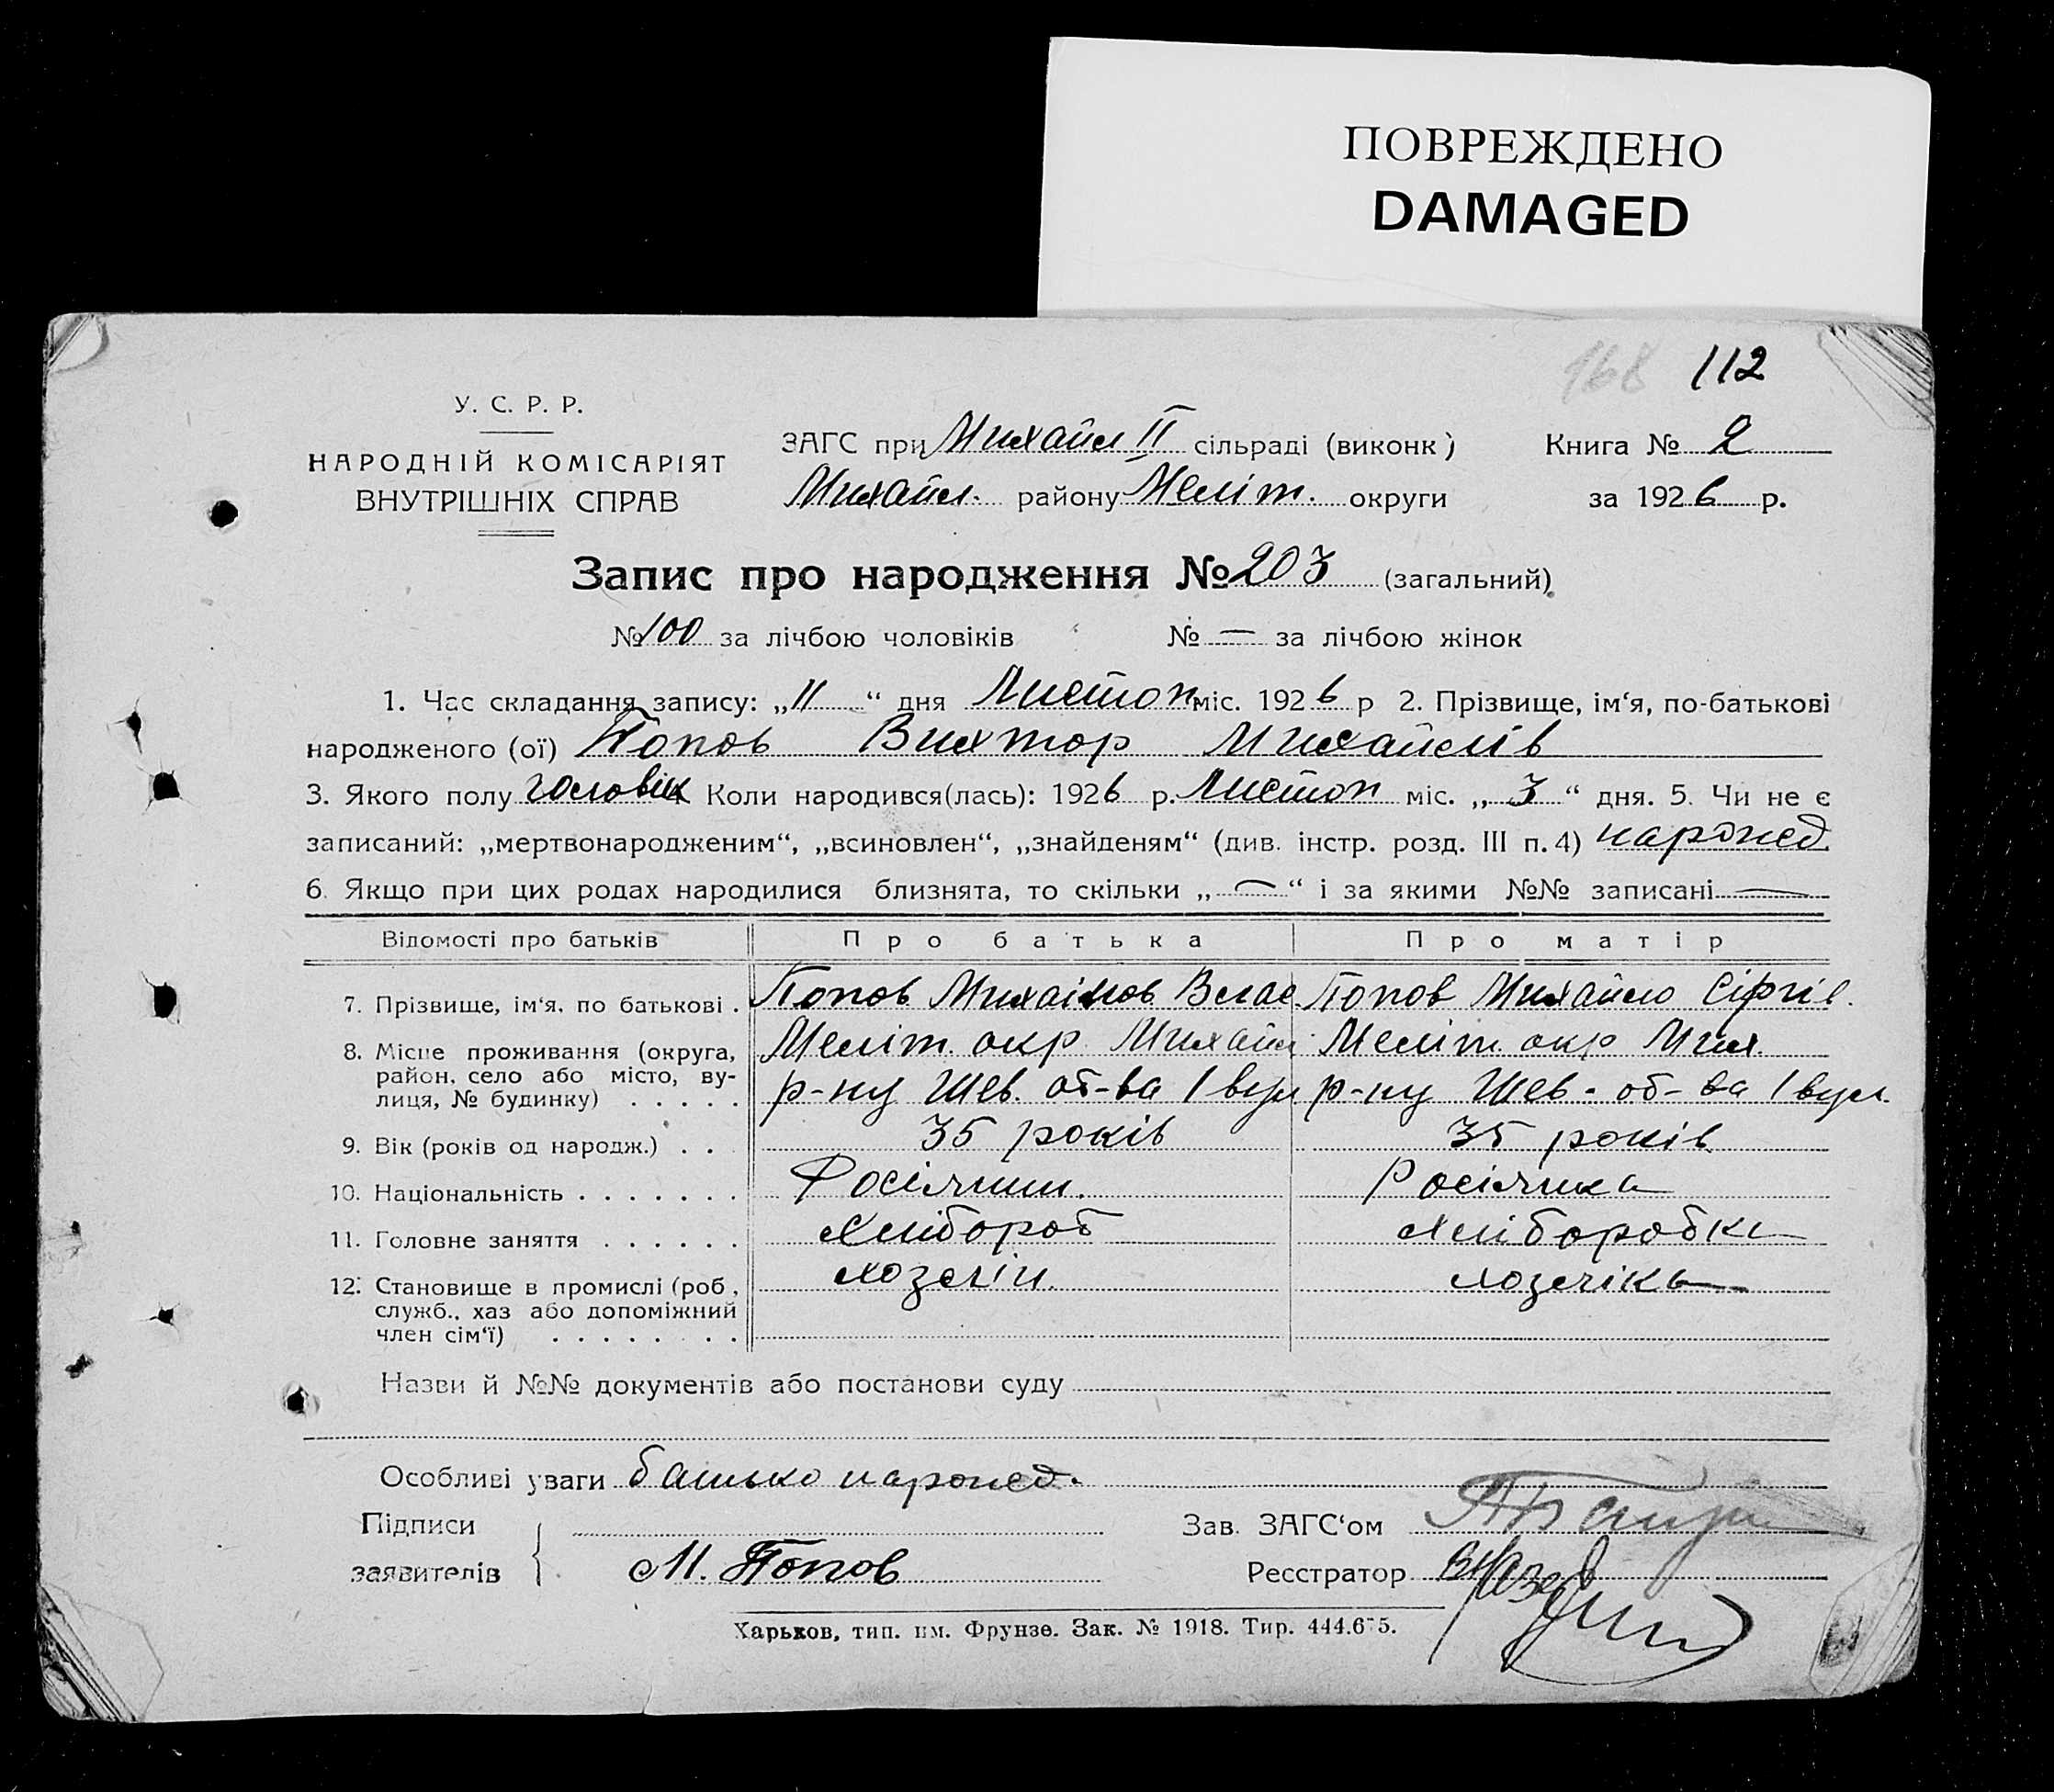 ПОВРЕЖДЕНО
DAMAGED
168 112
У. С. Р. Р.
НАРОДНІЙ КОМІСАРІЯТ
ВНУТРІШНІХ СПРАВ
ЗАГС при Михайл II сільраді (виконк) Книга № 2
Михайл. району Меліт. округи за 1926 р.
Запис про народження № 203 (загальний)
№ 100 за лічбою чоловіків № — за лічбою жінок
1. Час складання запису: „11“ дня Листоп міс. 1926 р 2. Прізвище, ім‘я, по-батькові
народженого (ої) Попов Виктор Михайлів
3. Якого полу чоловік Коли народився(лась): 1926 р. Листоп міс. „3“ дня. 5. Чи не є
записаний: „мертвонародженим“, „всиновлен“, „знайденям“ (див. інстр. розд. III п. 4) нарожед
6. Якщо при цих родах народилися близнята, то скільки „—“ і за якими №№ записані —
Відомості про батьків Про батька Про матір
7. Прізвище, ім‘я, по батькові . Попов Влас Попов Михайло Сіргіе.
8. Місце проживання (округа, Меліт. окр Михайл Меліт. окр Мих.
район, село або місто, ву- р-ну Шев. об-ва 1 вул р-ну Шев. об-ва 1 вул.
лиця, № будинку) . . . . .
9. Вік (років од народж.) . . . 35 років 35 років
10. Національність . . . . . . . Росіянин. Росіянка
11. Головне заняття . . . . . . Хлібороб Хліборобка
12. Становище в промислі (роб, хозяін хозяіка
служб., хаз або допоміжний
член сім‘ї) . . . . . . . .
Назви й №№ документів або постанови суду
Особливі уваги батько нарожед.
Підписи Зав. ЗАГС‘ом
заявителів М. Попов Ресстратор
Харьков, тип. им. Фрунзе. Зак. № 1918. Тир. 444.675.